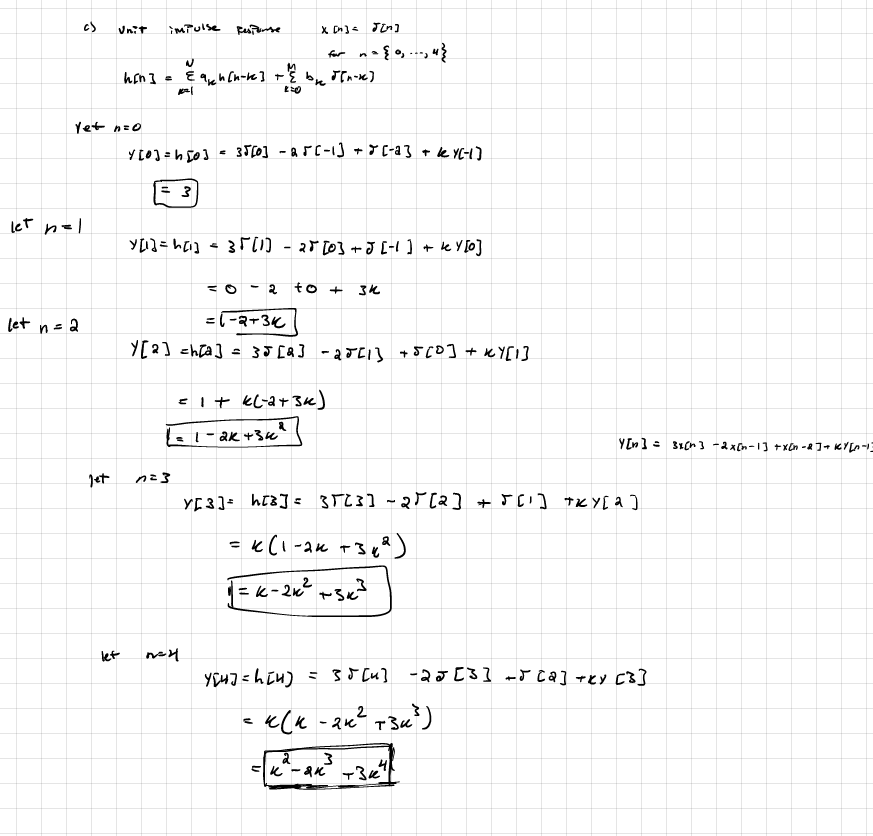 c) unit impulse response x[n] = δ[n]
for n = {0, ..., 4}
h[n] = Σ_{k=1}^{N} a_k h[n-k] + Σ_{k=0}^{M} b_k δ[n-k]
let n=0
y[0] = h[0] = 3δ[0] - 2δ[-1] + δ[-2] + k y[-1]
= 3
let n=1
y[1] = h[1] = 3δ[1] - 2δ[0] + δ[-1] + k y[0]
= 0 - 2 + 0 + 3k
= -2+3k
let n = 2
y[2] = h[2] = 3δ[2] - 2δ[1] + δ[0] + k y[1]
= 1 + k(-2+3k)
= 1 - 2k + 3k²
y[n] = 3x[n] - 2x[n-1] + x[n-2] + k y[n-1]
let n=3
y[3] = h[3] = 3δ[3] - 2δ[2] + δ[1] + k y[2]
= k(1-2k+3k²)
= k - 2k² + 3k³
let n=4
y[4] = h[4] = 3δ[4] - 2δ[3] + δ[2] + k y[3]
= k(k - 2k² + 3k³)
= k² - 2k³ + 3k⁴